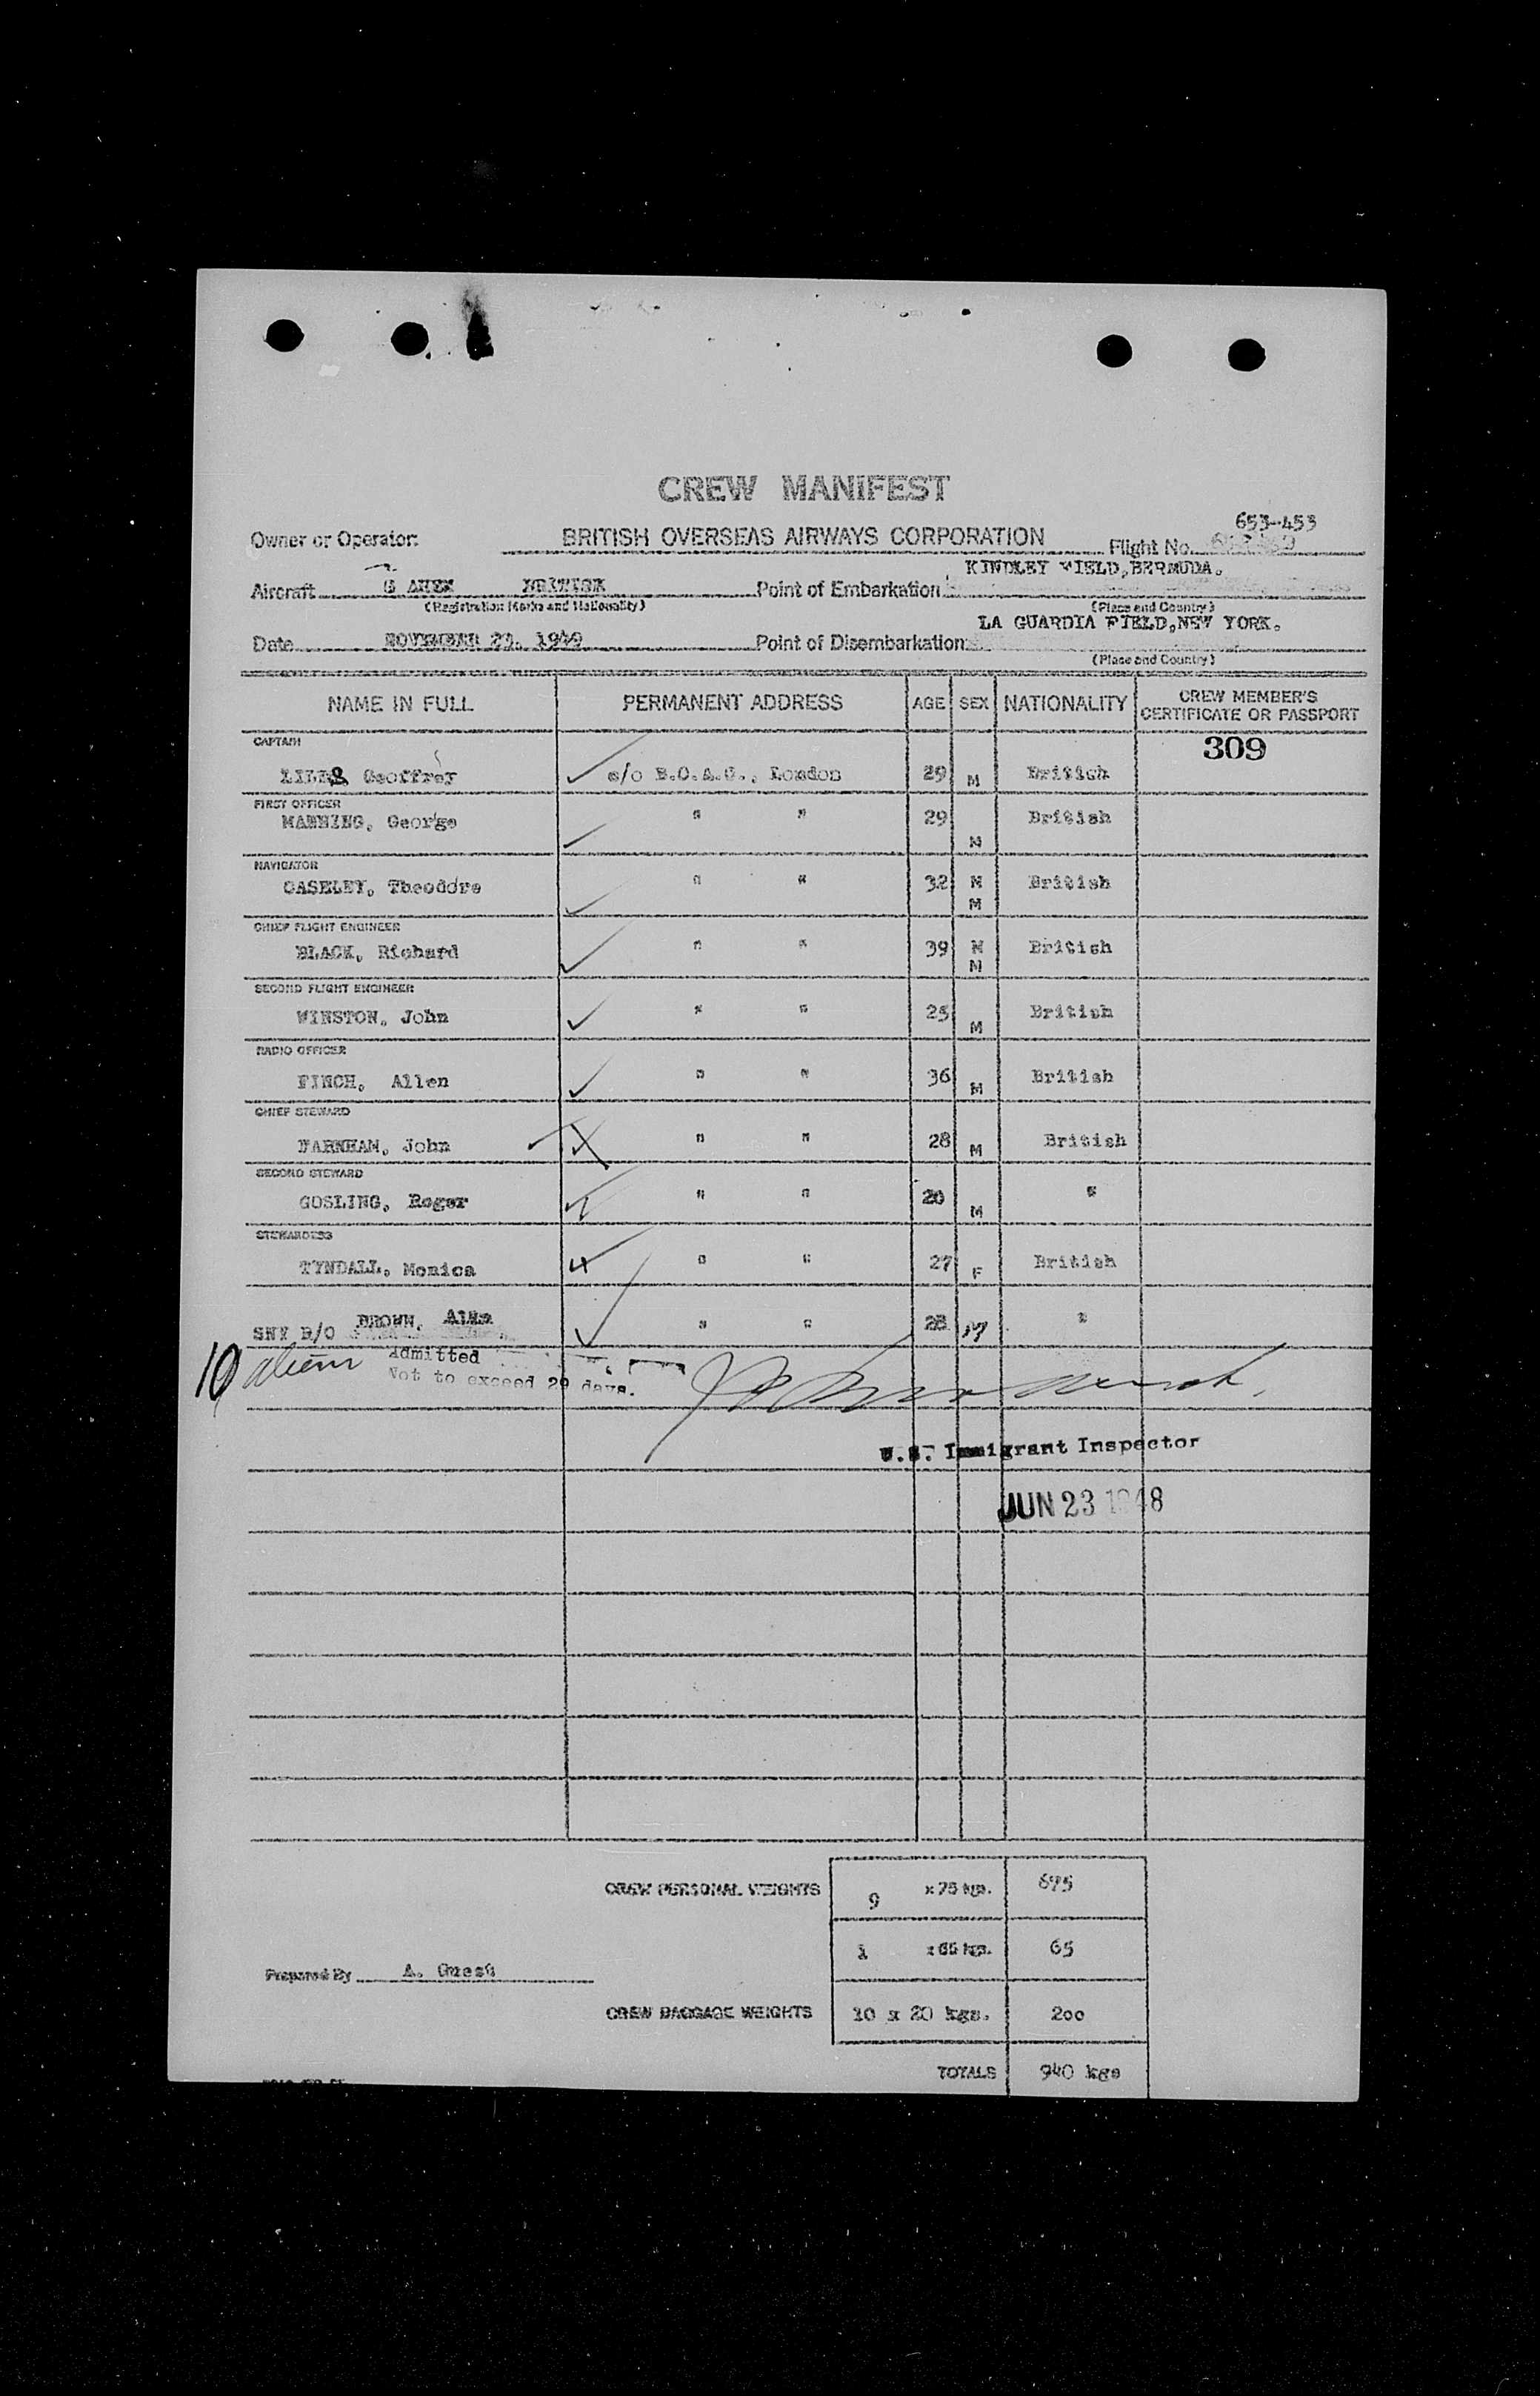 CREW MANIFEST
653-453
Owner or Operator: BRITISH OVERSEAS AIRWAYS CORPORATION Flight No.
KINDLEY FIELD, BERMUDA.
Aircraft BRITISH Point of Embarkation
(Registration Marks and Nationality) (Place and Country)
LA GUARDIA FIELD, NEW YORK.
Date NOVEMBER Point of Disembarkation
(Place and Country)
NAME IN FULL PERMANENT ADDRESS AGE SEX NATIONALITY CREW MEMBER'S CERTIFICATE OR PASSPORT
CAPTAIN 309
Geoffrey c/o B.O.A.C., London 29 M British
FIRST OFFICER
MANNING, George " " 29 M British
NAVIGATOR
Theodore " " 32 M M British
CHIEF FLIGHT ENGINEER
BLACK, Richard " " 39 M M British
SECOND FLIGHT ENGINEER
WINSTON, John " " 25 M British
RADIO OFFICER
FINCH, Allen " " 36 M British
CHIEF STEWARD
FARNHAM, John " " 28 M British
SECOND STEWARD
GOSLING, Roger " " 20 M "
STEWARDESS
TYNDALL, Monica " " 27 F British
SNY R/O BROWN, " " 28 M "
10 aliens Admitted
Not to exceed 29 days.
U.S. Immigrant Inspector
JUN 23 1948
CREW PERSONAL WEIGHTS 9 x 75 kgs. 675
1 x 65 kgs. 65
Prepared By A. Guest
CREW BAGGAGE WEIGHTS 10 x 20 kgs. 200
TOTALS 940 kgs